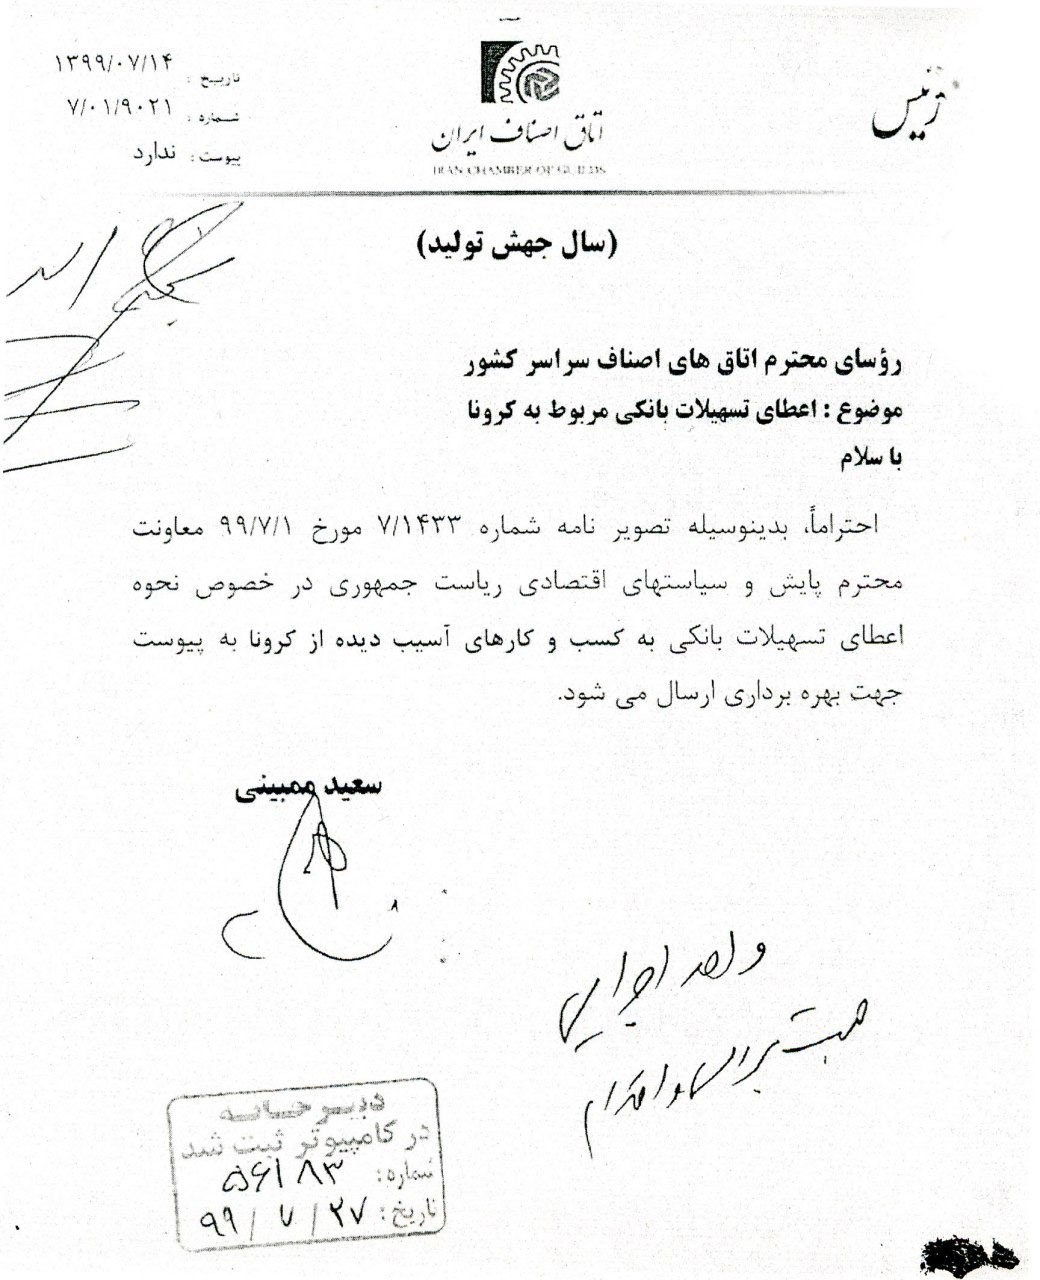 رئیس
اتاق اصناف ایران
IRAN CHAMBER OF GUILDS
تاریخ : ۱۳۹۹/۰۷/۱۴
شماره : ۷/۰۱/۹۰۲۱
پیوست : ندارد
(سال جهش تولید)
رؤسای محترم اتاق های اصناف سراسر کشور
موضوع : اعطای تسهیلات بانکی مربوط به کرونا
با سلام
احتراماً، بدینوسیله تصویر نامه شماره ۷/۱۴۳۳ مورخ ۹۹/۷/۱ معاونت
محترم پایش و سیاستهای اقتصادی ریاست جمهوری در خصوص نحوه
اعطای تسهیلات بانکی به کسب و کارهای آسیب دیده از کرونا به پیوست
جهت بهره برداری ارسال می شود.
سعید ممبینی
واحد اجرایی
جهت بررسی و اقدام
دبیرخانه
در کامپیوتر ثبت شد
شماره: ۵۶۱۸۳
تاریخ: ۹۹/۷/۲۷